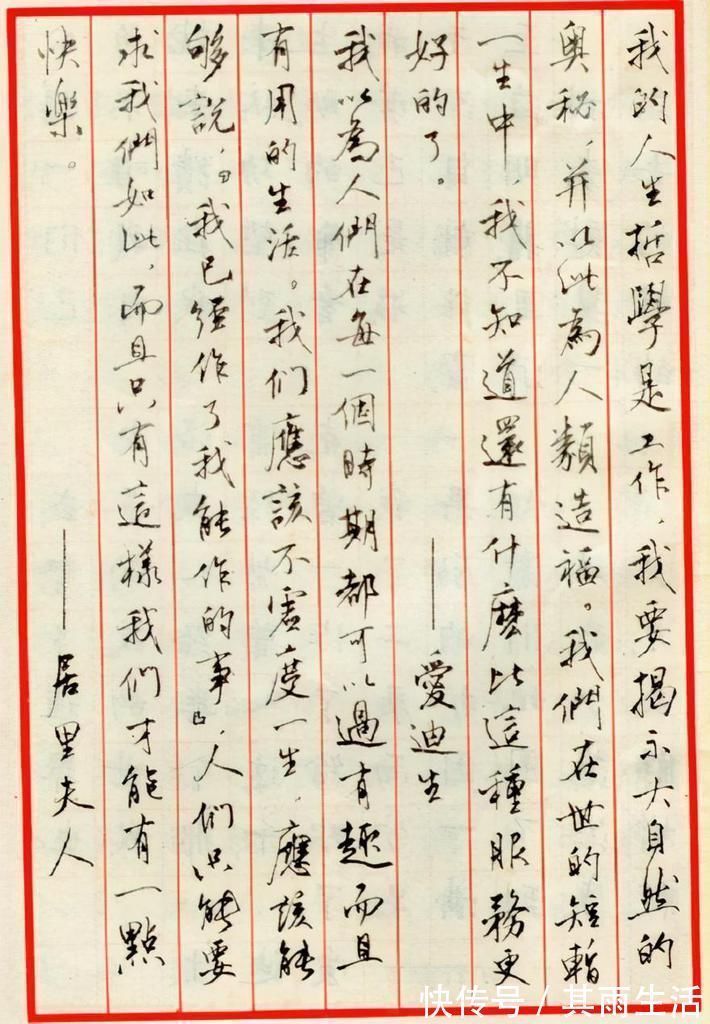 我的人生哲學是工作，我要揭示大自然的
奥秘，并以此為人類造福。我們在世的短暫
一生中，我不知道還有什麽比這種服務更
好的了。
——愛迪生
我以為人們在每一個時期都可以過有趣而且
有用的生活。我们應該不虛度一生，應該能
够說，『我已經作了我能作的事』，人们只能要
求我們如此，而且只有這樣我们才能有一點
快樂。
——居里夫人
快传号／其雨生活